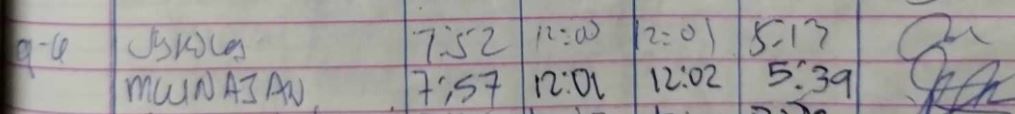 9-6 7:52 12:00 12:01 5:13
MWNAJAN 7:57 12:01 12:02 5:39